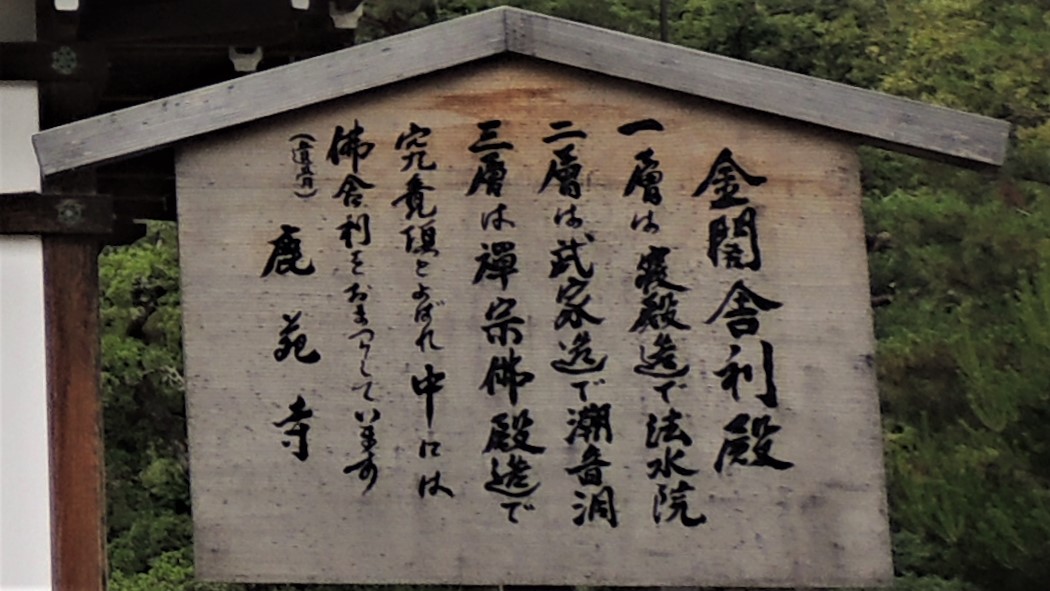 金閣舎利殿
一層は寝殿造で法水院
二層は武家造で潮音洞
三層は禪宗佛殿造で
究竟頂とよばれ中には
佛舎利をおまつりしています
鹿苑寺